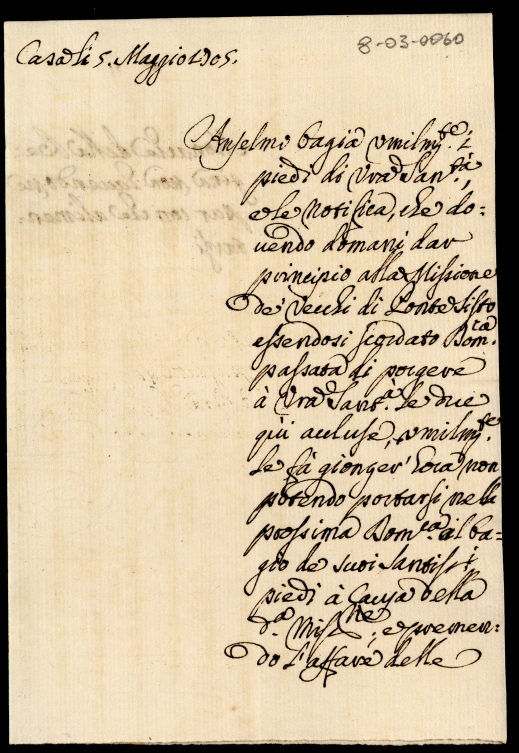 8-03-0060
Casa li 5. Maggio 1705.
Anselmo bagia vmilm.te i
piedi di Vra San.tà,
e le notifica, che do:
uendo domani dar
principio alla Missione
de' Vecchi di Ponte Sisto
essendosi scordato Dom.ca
passata di porgere
à Vra Sant.à le due
qui accluse, vmilm.te
le fà gionger' hora non
potendo portarsi nella
prossima Dom.ca al ba=
gio de suoi Santiss.i
piedi à causa della
d.a Miss.ne, e premen:
do l'affare delle